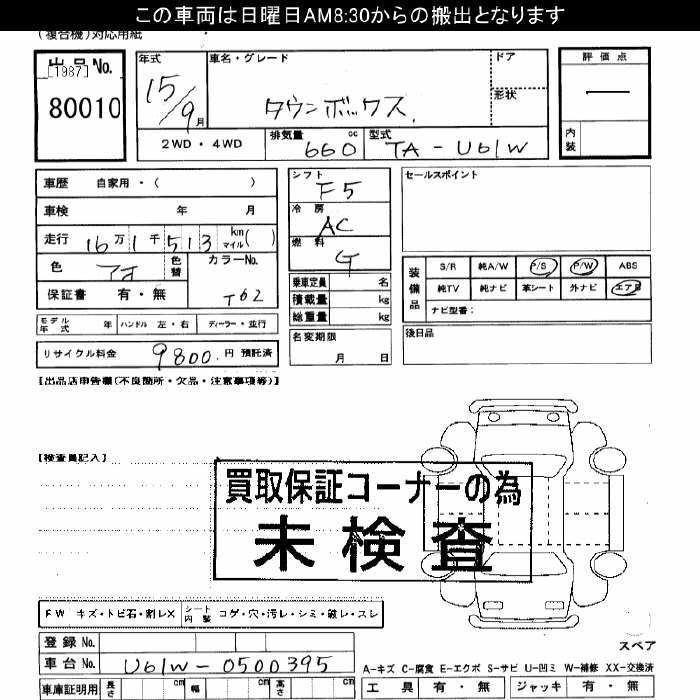 この車両は日曜日AM8:30からの搬出となります
(複合機)対応用紙
出品No. 年式 車名・グレード ドア 評価点
[1987]
80010 15/9月 タウンボックス 形状
2WD・4WD 排気量 660 cc 型式 TA-U61W 内装
車歴 自家用・( ) シフト F5 セールスポイント
車検 年 月 冷房 AC
走行 16万1千513 km マイル( ) 燃料 G
色 アオ 色替 カラーNo. T62
装備品 S/R 純A/W P/S P/W ABS
保証書 有・無 乗車定員 名 純TV 純ナビ 革シート 外ナビ エアB
積載量 kg ナビ型番:
モデル年式 年 ハンドル 左・右 ディーラー・並行 総重量 kg
リサイクル料金 9800.円 預託済 名変期限 月 日 後日品
【出品店申告欄(不良箇所・欠品・注意事項等)】
【検査員記入】
買取保証コーナーの為
未検査
FW キズ・トビ石・割レX シート内装 コゲ・穴・汚レ・シミ・破レ・スレ
登録No.
スペア
車台No. U61W-0500395 A-キズ C-腐食 E-エクボ S-サビ U-凹ミ W-補修 XX-交換済
車庫証明用 長さ cm 幅 cm 高さ cm 工具 有・無 ジャッキ 有・無